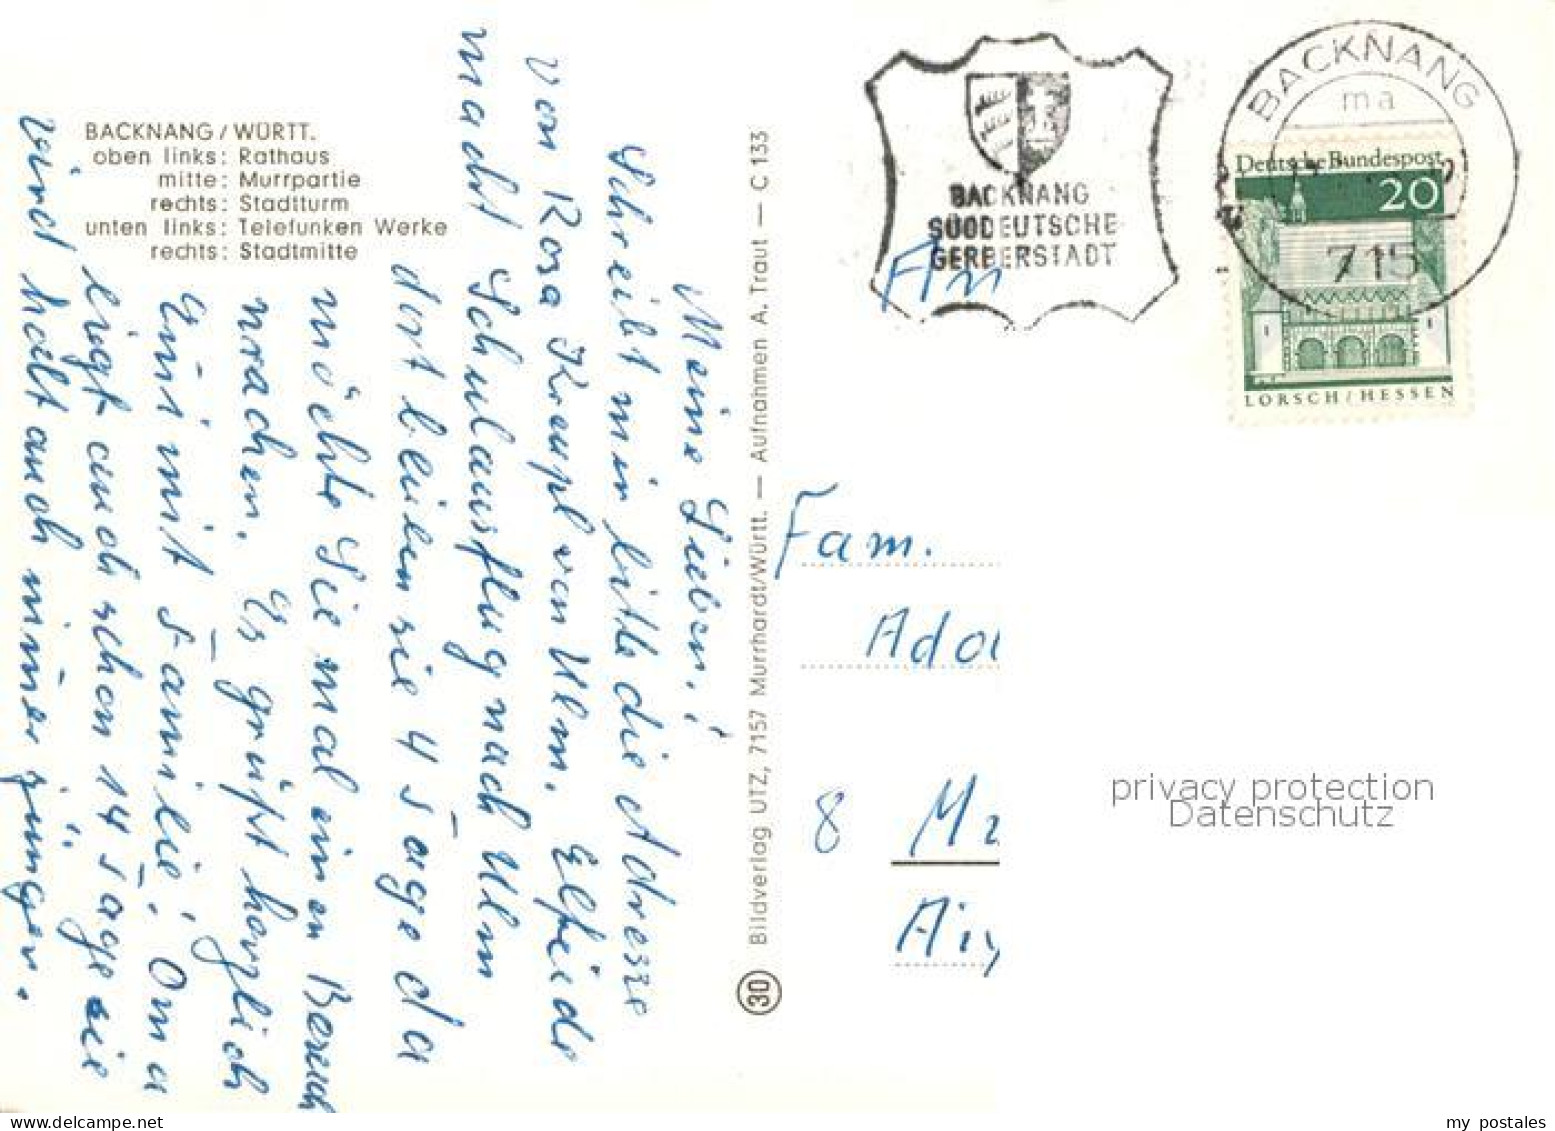 BACKNANG / WÜRTT.
oben links: Rathaus
mitte: Murrpartie
rechts: Stadtturm
unten links: Telefunken Werke
rechts: Stadtmitte
Meine Lieben!
Schreibt mir bitte die Adresse
von Rosa Krempl von Ulm. Elfride
macht Schulausflug nach Ulm
dort bleiben sie 4 Tage da
möchte Sie mal einen Besuch
machen. Es grüßt herzlich
Emi mit Familie. Oma
liegt auch schon 14 Tage sie
wird halt auch nimer jünger.
Bildverlag UTZ, 7157 Murrhardt/Württ. — Aufnahmen A. Traut — C 133
30
BACKNANG
SÜDDEUTSCHE
GERBERSTADT
BACKNANG
ma
715
Deutsche Bundespost
20
LORSCH/HESSEN
An
Fam.
Ado
8 M
privacy protection
Datenschutz
my postales